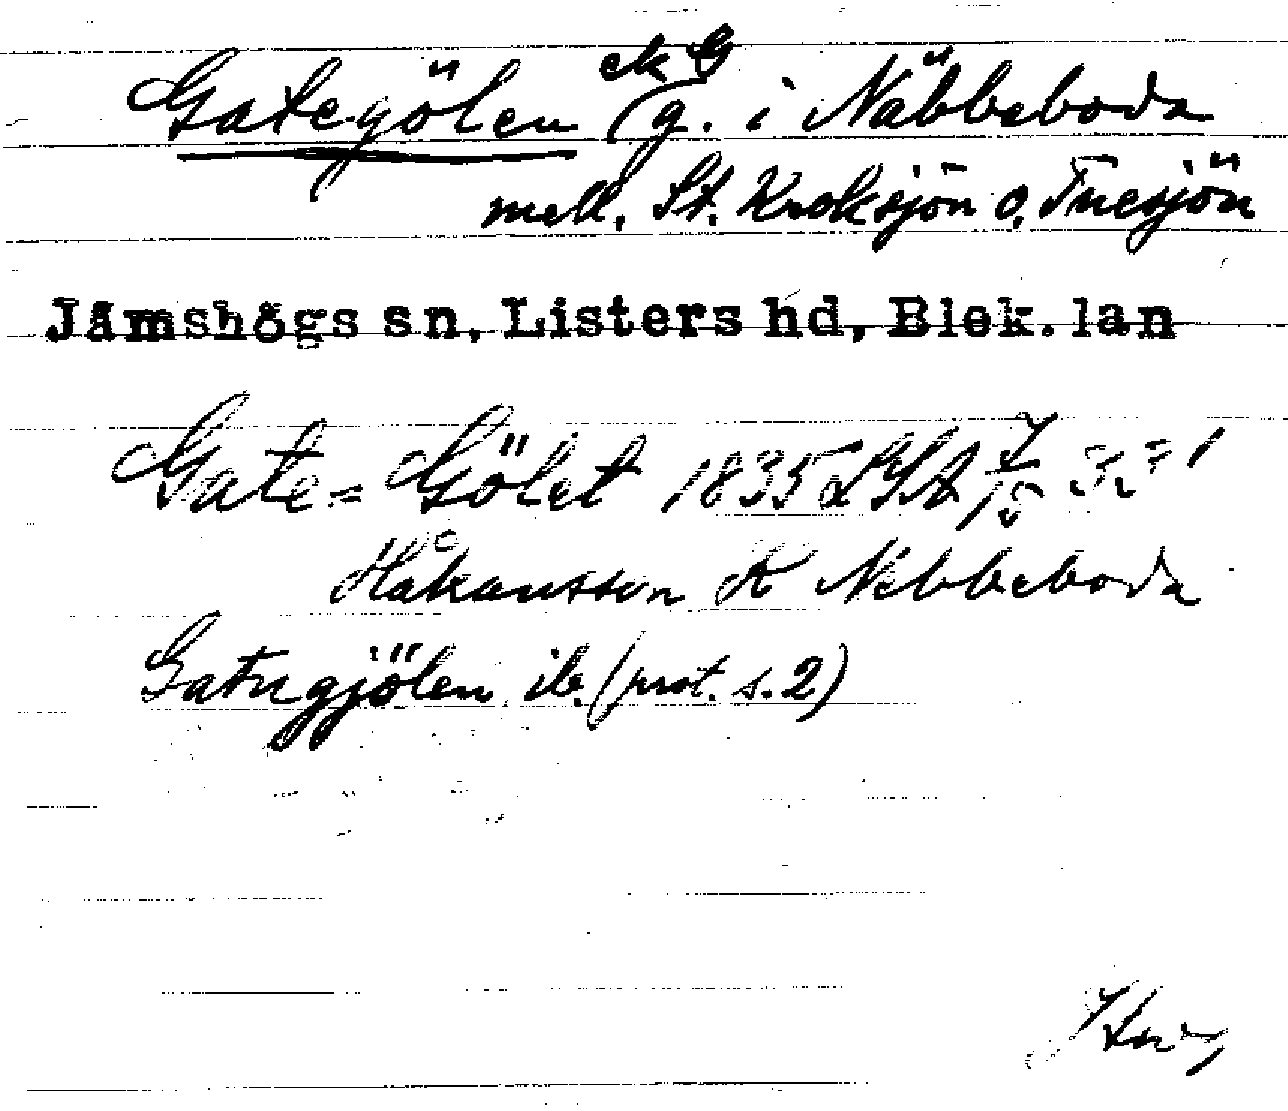 ek G
Gategölen (g. i Näbbeboda
mell. St. Kroksjön o.
Jämshögs sn, Listers hd, Blek. län
Gate=Gölet 1835 LSA
Håkansson K Nebbeboda
Gatugjölen ib. (prot. s. 2)